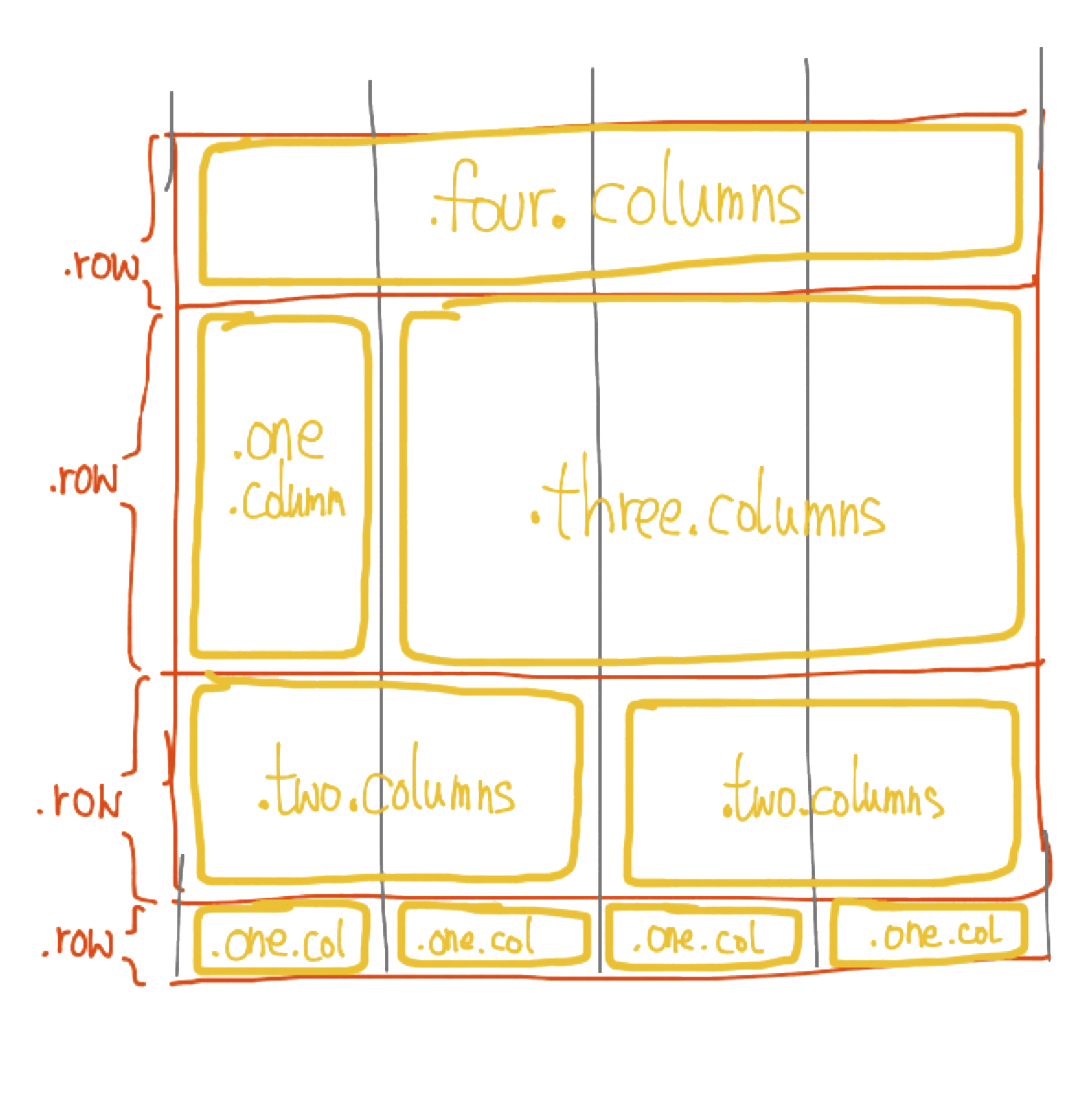 .four.columns
.row
.one
.column
.row
.three.columns
.row
.two.columns
.two.columns
.row
.one.col
.one.col
.one.col
.one.col